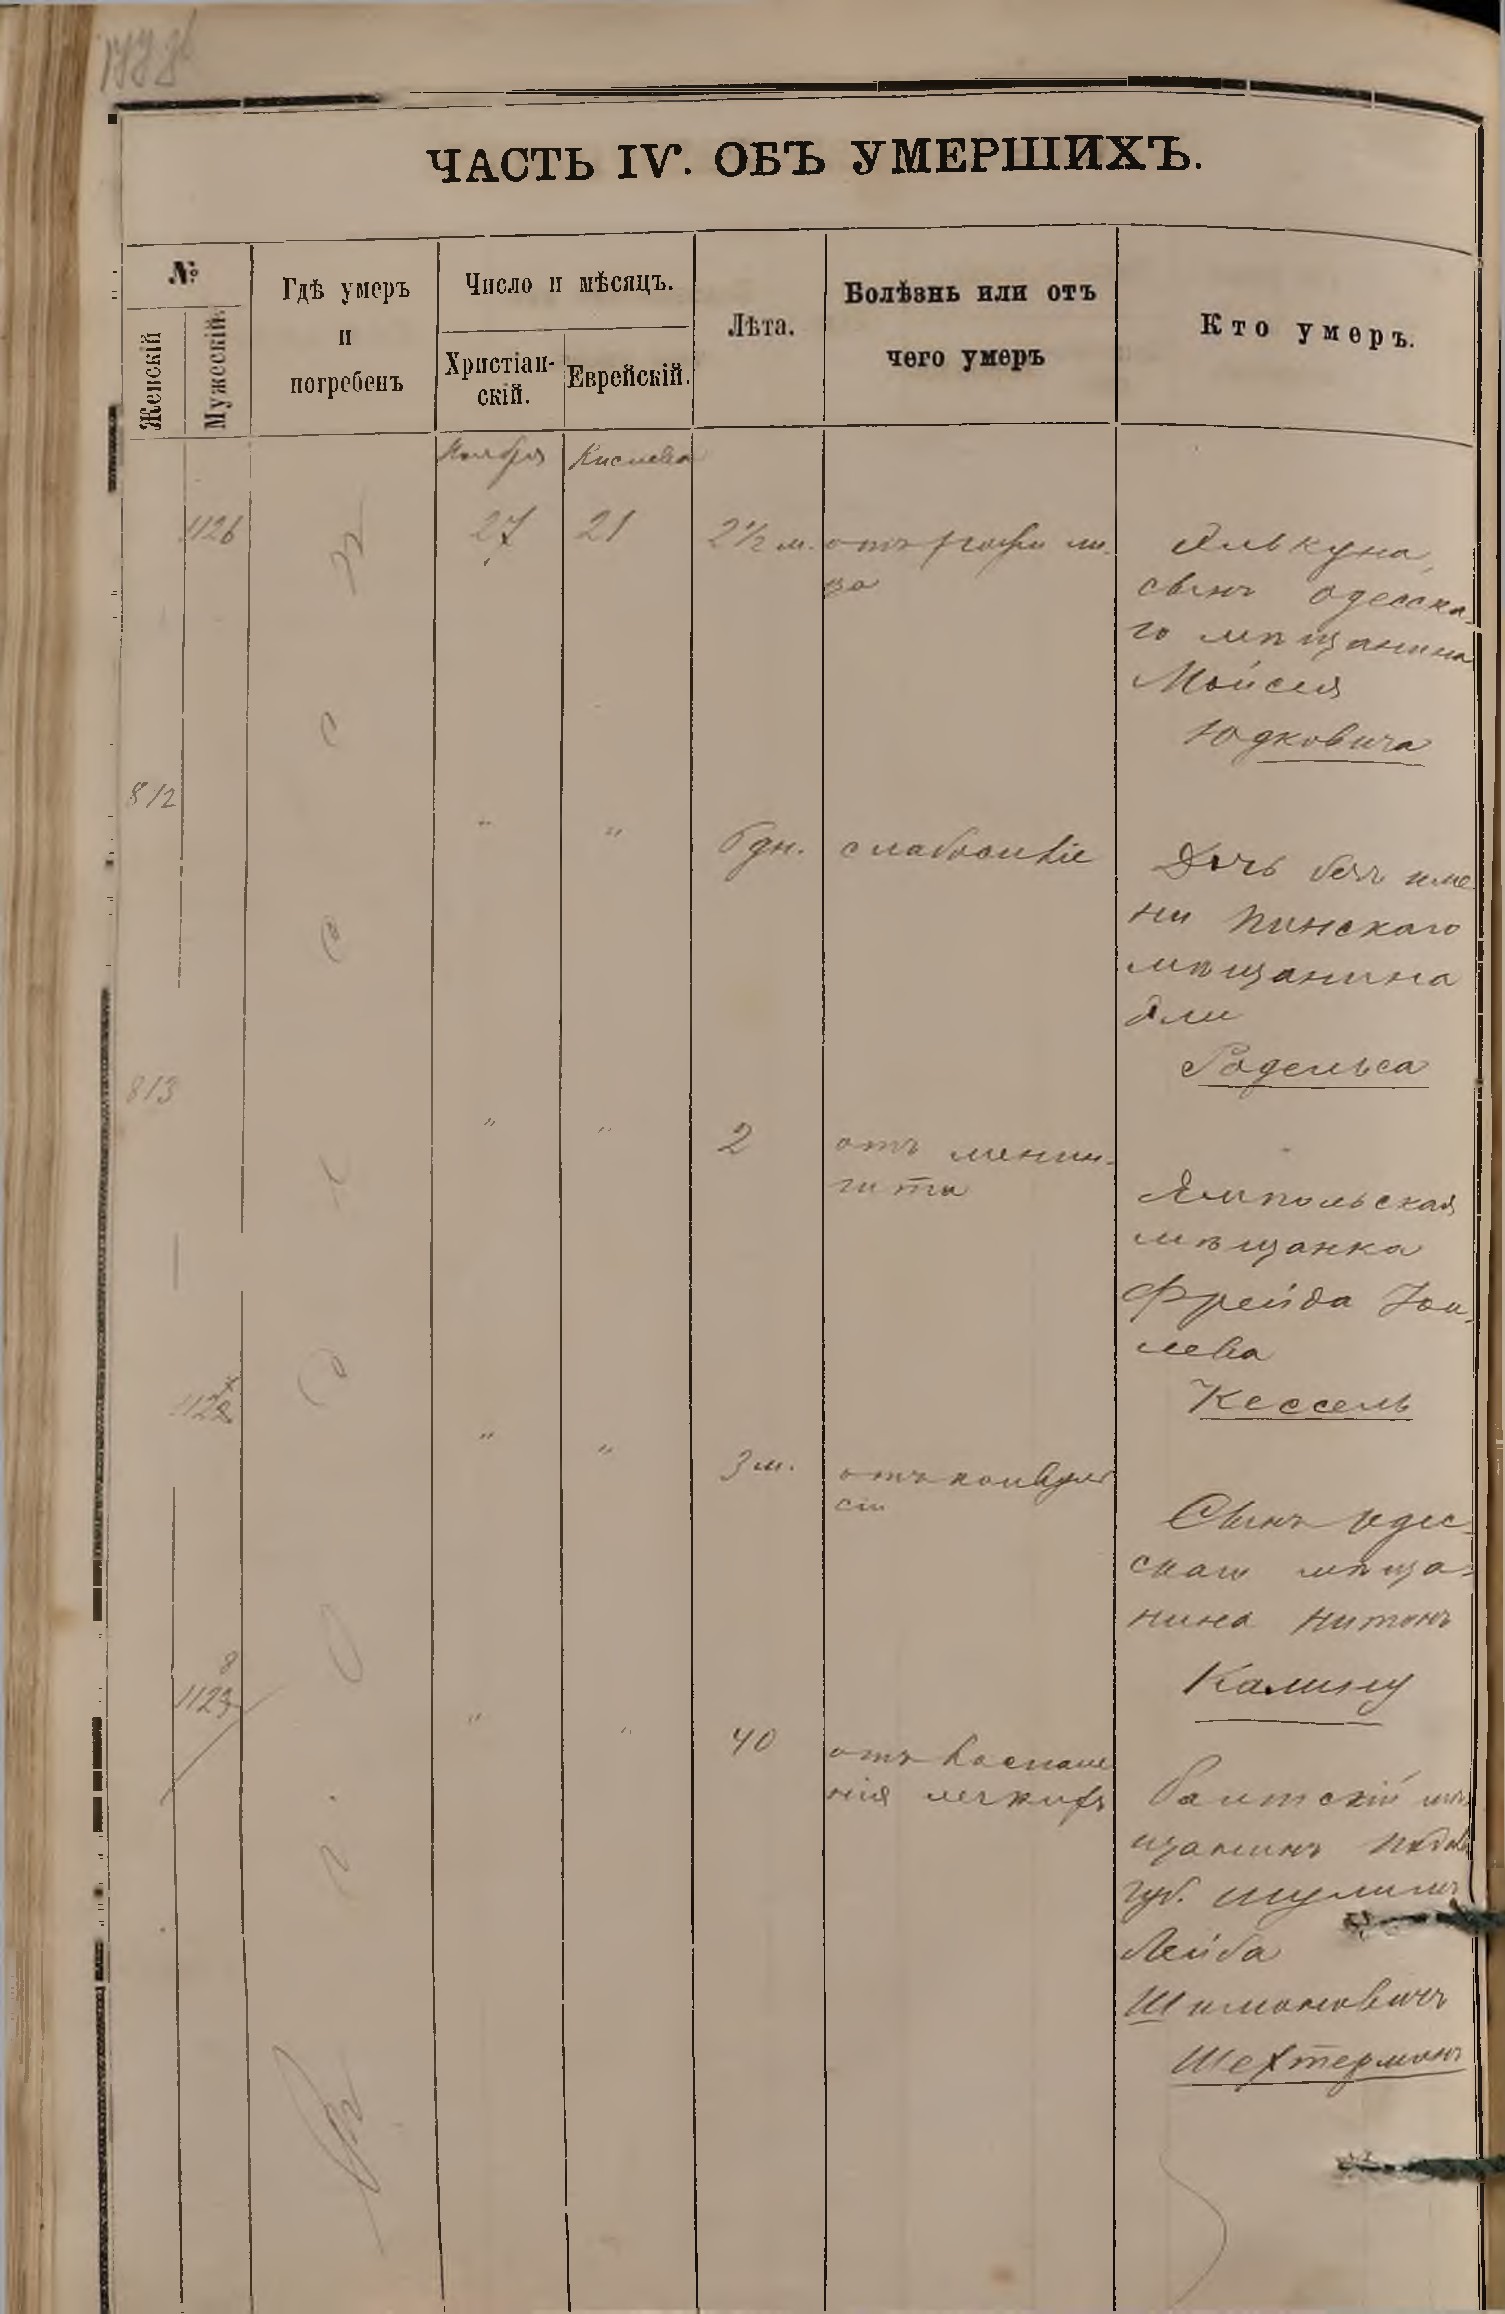 ЧАСТЬ IV. ОБЪ УМЕРШИХЪ.
№
Женскій
Мужескій.
Гдѣ умеръ
и
погребенъ
Число и мѣсяцъ.
Христіан-
скій.
Еврейскій.
Лѣта.
Болѣзнь или отъ
чего умеръ
Кто умеръ.
Ноября Кислева
1126 27 21 2½ м. отъ рожи ли-
ца
Янькуна,
сынъ одесска-
го мѣщанина
Мойсея
Юдковича
812 " " 6 дн. слабосиліе
Дочь безъ име
ни Пинскаго
мѣщанина
Эли
Родельса
813 " " 2 отъ менин-
гита
Ямпольская
мѣщанка
Фрейда
лева
Кессель
" " 3 м. отъ конвуль
сіи
Сынъ одес-
скаго мѣща-
нина
Калину
" " 40 отъ воспале
нія легкихъ
Балтскій мѣ
щанинъ Подол
губ.
Лейба
Шимоновичъ
Шехтерманъ